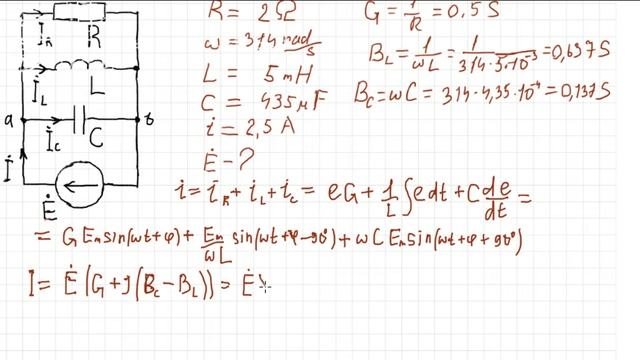 İ_R R
İ_L L
a b
İ_c C
İ
Ė
R = 2Ω
ω = 314 rad/s
L = 5mH
C = 435μF
i = 2,5 A
Ė - ?
G = 1/R = 0,5 S
B_L = 1/ωL = 1/314·5·10⁻³ = 0,637S
B_c = ωC = 314·4,35·10⁻⁴ = 0,137S
i = i_R + i_L + i_c = eG + 1/L ∫edt + C de/dt =
= G E_m sin(ωt+φ) + E_m/ωL sin(ωt+φ-90°) + ωC E_m sin(ωt+φ+90°)
I = Ė (G+j(B_c - B_L)) = Ė